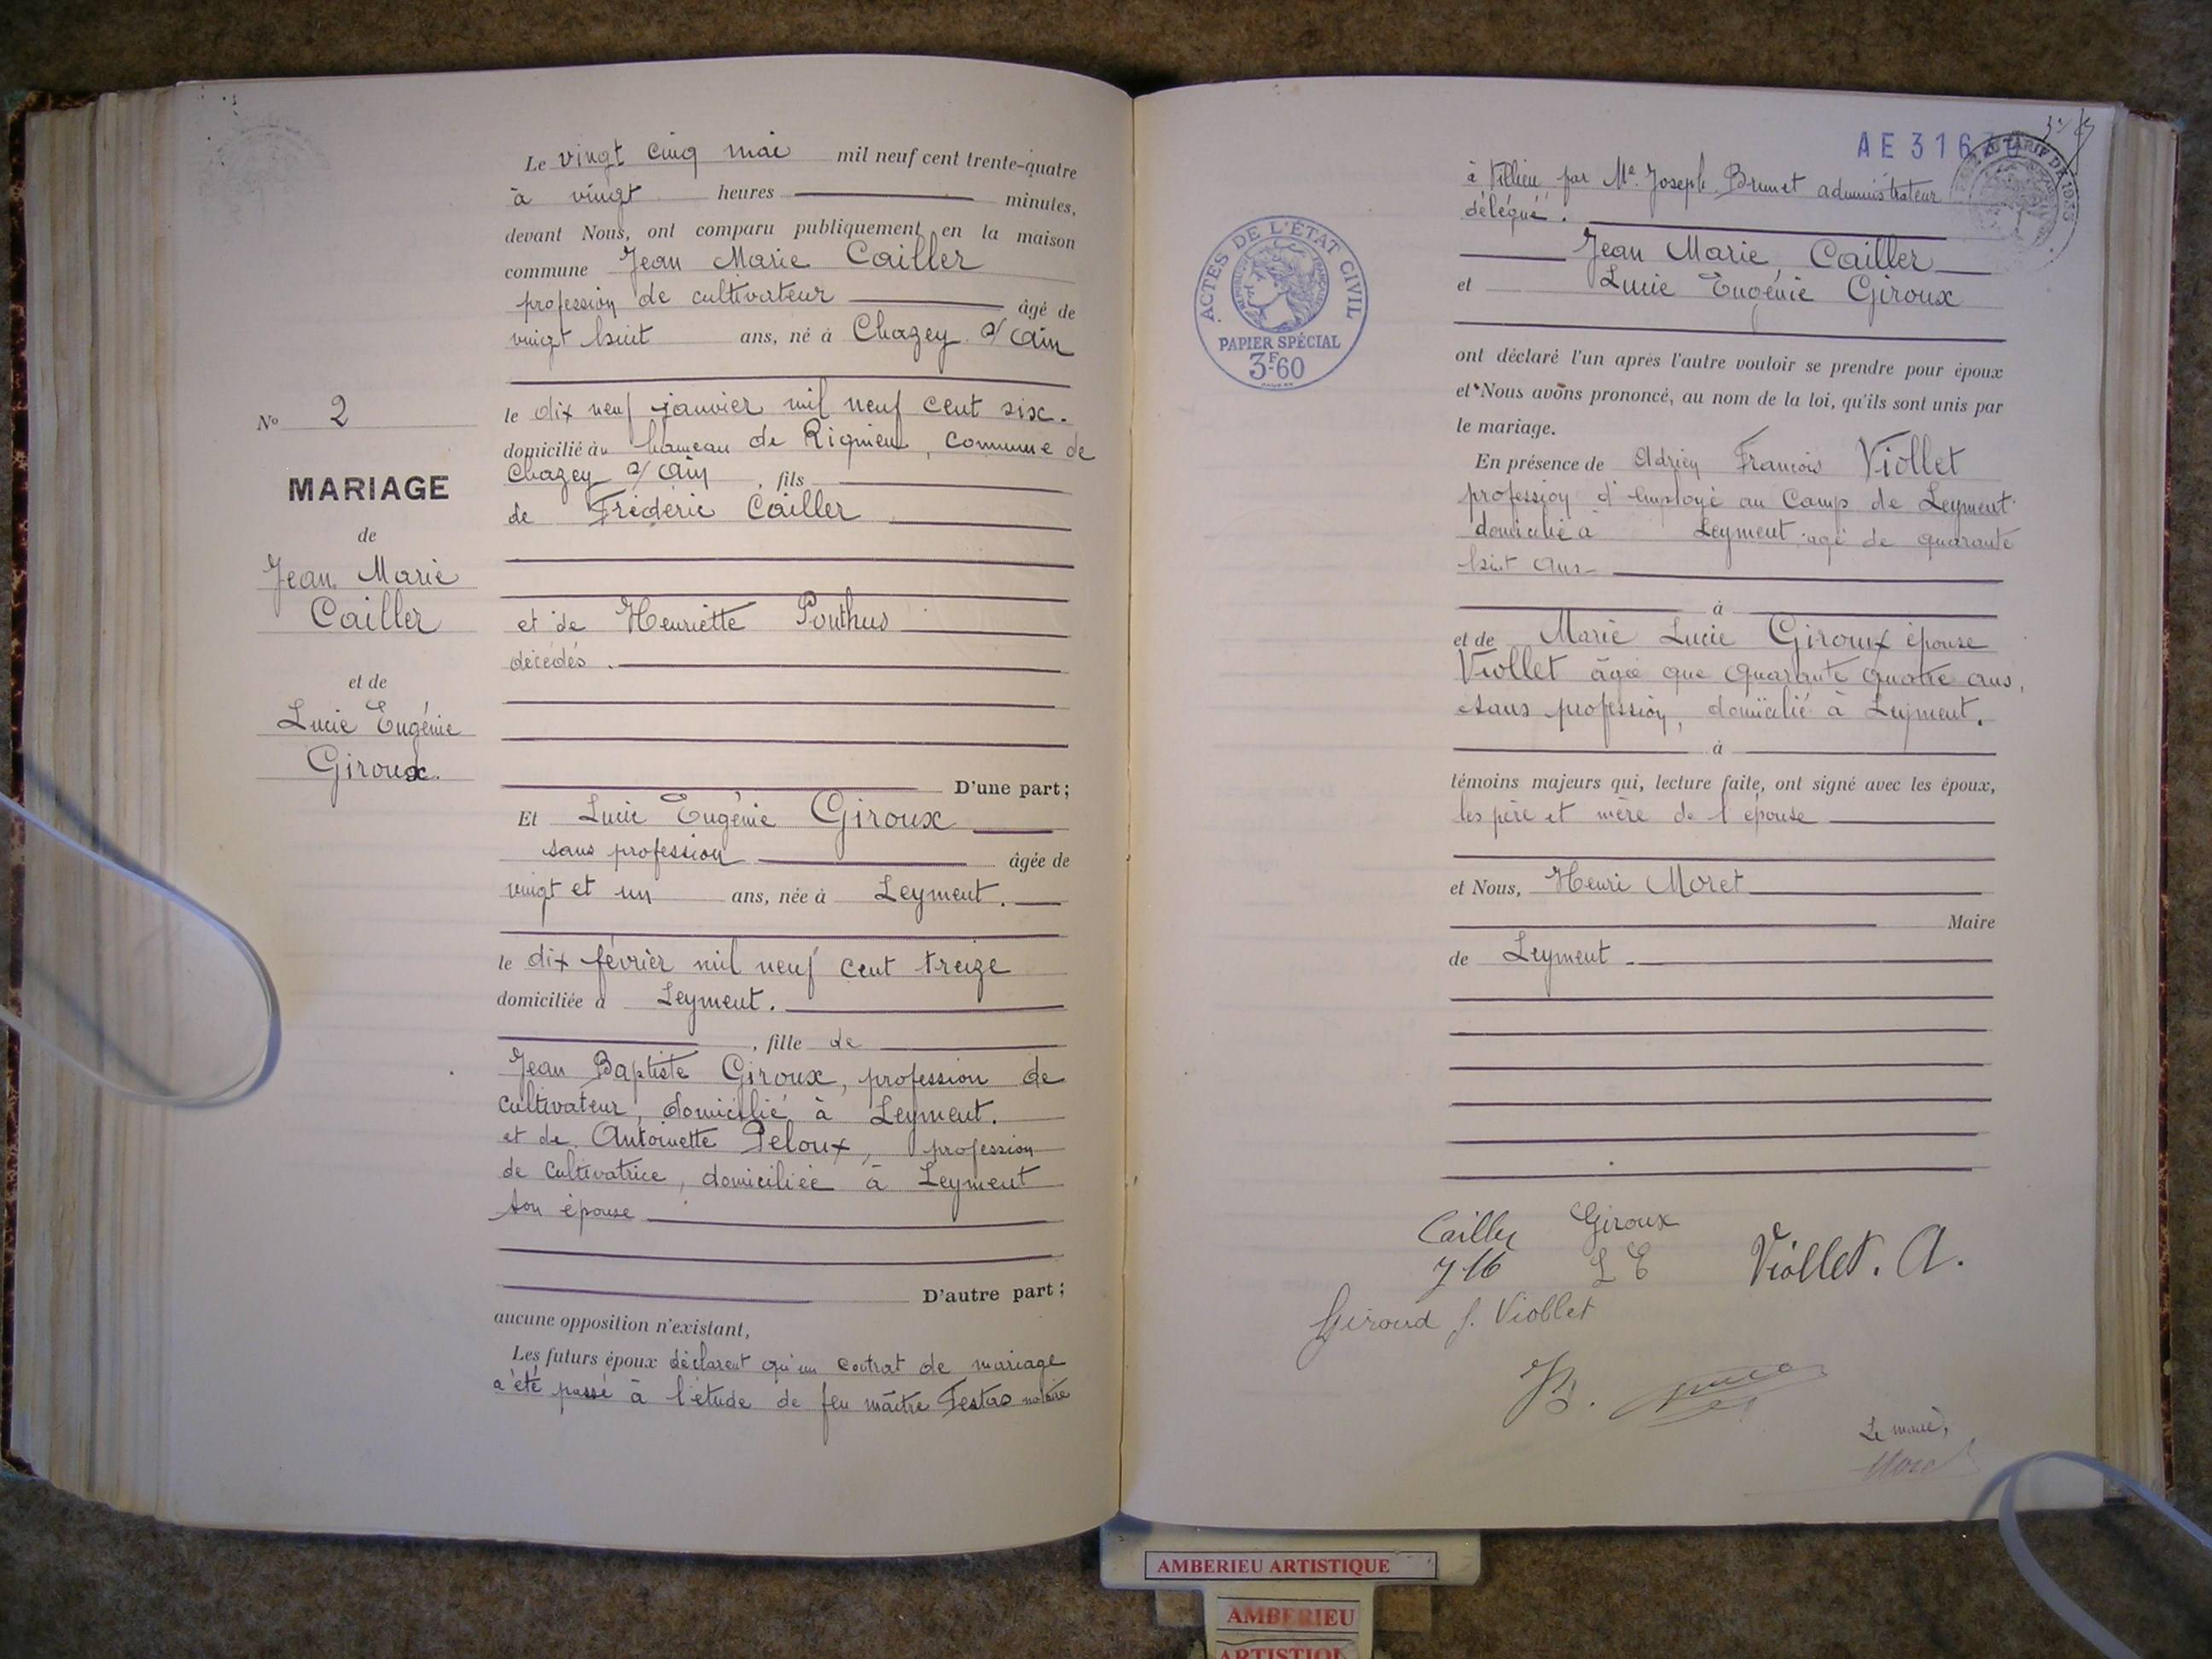 Le vingt cinq mai mil neuf cent trente-quatre
à vingt heures minutes,
devant Nous, ont comparu publiquement en la maison
commune Jean Marie Cailler
profession de cultivateur âgé de
vingt huit ans, né à Chazey s/ Ain
le dix neuf janvier mil neuf cent six.
domicilié au hameau de Rignieu, commune de
Chazey s/ Ain, fils
de Frédéric Cailler
et de Henriette Ponthus
décédés.
D'une part;
No 2
MARIAGE
de
Jean Marie
Cailler
et de
Lucie Eugénie
Giroux.
Et Lucie Eugénie Giroux
sans profession âgée de
vingt et un ans, née à Leyment.
le dix février mil neuf cent treize
domiciliée à Leyment.
, fille de
Jean Baptiste Giroux, profession de
cultivateur, domicilié à Leyment.
et de Antoinette Peloux, profession
de cultivatrice, domiciliée à Leyment
son épouse
D'autre part;
aucune opposition n'existant,
Les futurs époux déclarent qu'un contrat de mariage
a été passé à l'étude de feu maître Festas notaire
AE 316
à Villieu par Me. Joseph Brunet administrateur
délégué.
Jean Marie Cailler
et Lucie Eugénie Giroux
ACTES DE L'ÉTAT CIVIL
RÉPUBLIQUE FRANÇAISE
PAPIER SPÉCIAL
3F60
ont déclaré l'un après l'autre vouloir se prendre pour époux
et Nous avons prononcé, au nom de la loi, qu'ils sont unis par
le mariage.
En présence de Adrien François Viollet
profession d'employé au Camp de Leyment
domicilié à Leyment agé de quarante
huit ans
à
et de Marie Lucie Giroux épouse
Viollet âgée que quarante quatre ans,
sans profession, domicilié à Leyment.
à
témoins majeurs qui, lecture faite, ont signé avec les époux,
les père et mère de l'épouse
et Nous, Henri Moret
Maire
de Leyment
Cailler Giroux
J M L E Viollet. A.
Giroud f. Viollet
Le maire,
Moret
AMBERIEU ARTISTIQUE
AMBERIEU
ARTISTIQU